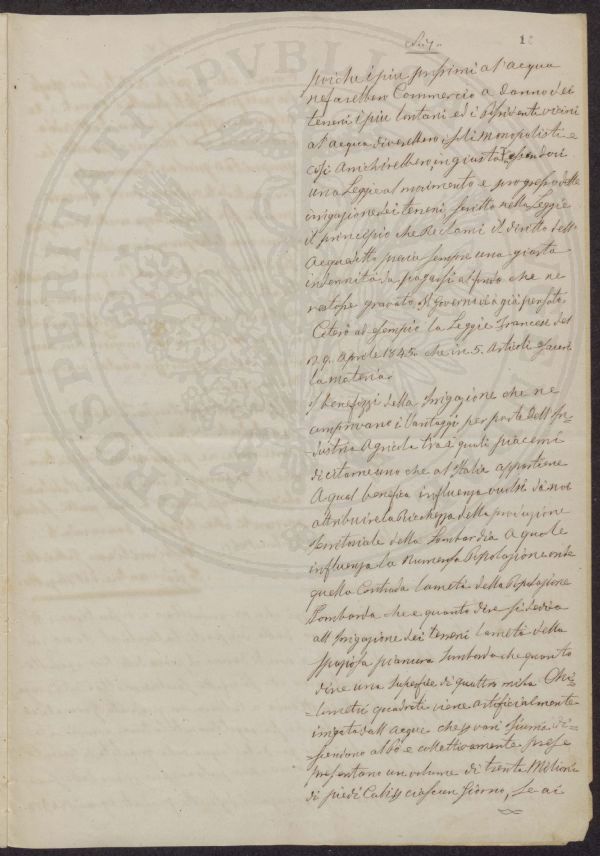 12
poiche i piu prossimi al'acqua
ne farebbero Commercio a danno dei
terreni i piu lontani ed i Possidenti vicini
al'acqua diverebbero i soli Monopolisti e
cosi Anichirebbero, in giusta
una Legge al movimento e progresso delle
irrigazione dei terreni, scritto nella Legge
il principio che Reclami il diritto dell'
Acquedotto previa sempre una giusta
indennità da pagarsi al fondo che ne
restasse gravato. I Governi vi à già pensato
Citerò ad esempio la Leggie Francese del
29. Aprile 1845. che in 5. Articoli
la materia.
I benefizzi della Irrigazione che ne
comprovano i Vantaggi per parte dell'In-
dustria Agricola tra i quali piacemi
di citarne uno che al'Italia appartiene
A qual benefica influenza vuolsi da noi
attribuire la Ricchezza della produzione
territoriale della Lombardia A quale
influenza la Numerosa Popolazione onde
quella Contrada la metà della Popolazione
Lombarda che e quanto dire si dedica
all'Irrigazione dei terreni la metà della
spaziosa pianura Lombarda che quanto
dire una superfice di quattro mila Chi-
lometri quadrati viene artificialmente
irrigata dall'Acque che varii fiumi di-
spendono al Pò e collettivamente prese
presentano un volume di trenta Milioni
di piedi Cubi ciascun Giorno, Se ai
PROSPERITATI PVBLICAE